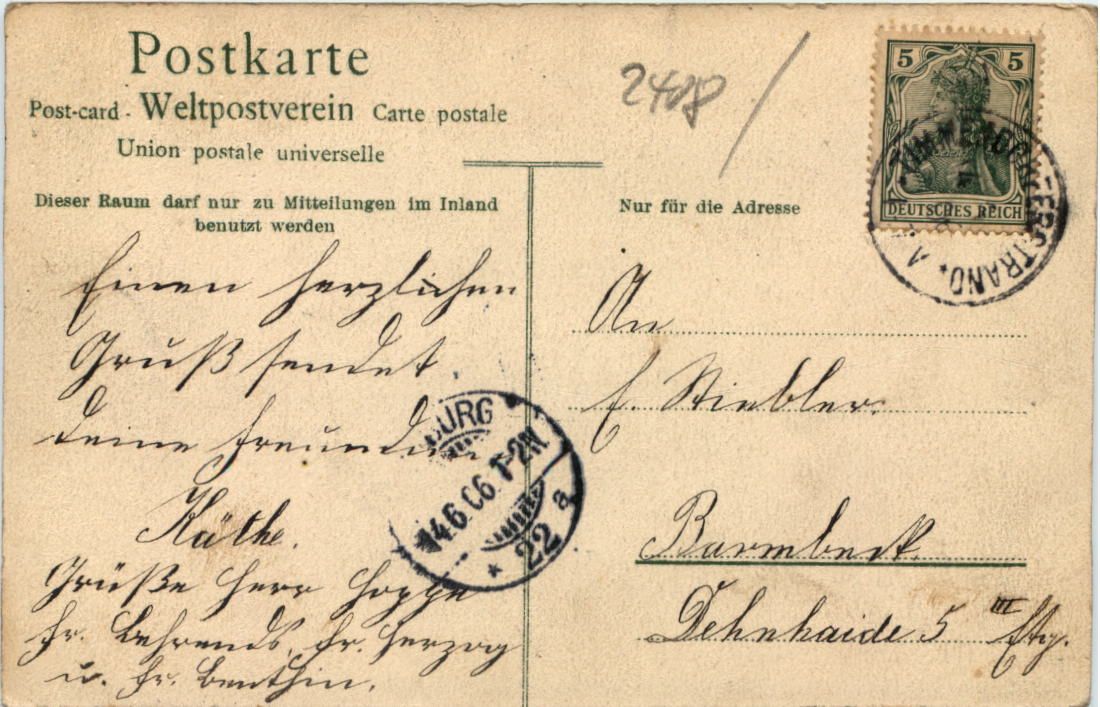 Postkarte
Post-card - Weltpostverein Carte postale
Union postale universelle
Dieser Raum darf nur zu Mitteilungen im Inland
benutzt werden
Einen herzlichen
Gruß sendet
deine Freundin
Käthe.
Grüße Herr Hoppe
Fr. Behrends, Fr. Herzog
u. Fr. Benthin.
2408
Nur für die Adresse
5 5
DEUTSCHES REICH
TIMMENDORFERSTRAND
BURG
14.6.06. 1-2N.
* 22 a
An
E. Stiebler.
Barmbeck.
Dehnhaide 5 III Etg.